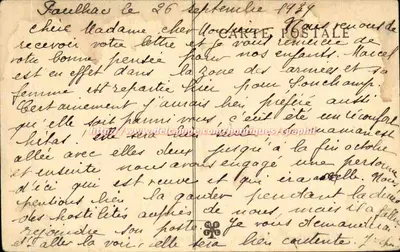 Paulhac le 26 septembre 1939
Chère Madame, cher Monsieur, Nous venons de
CARTE POSTALE
recevoir votre lettre et je vous remercie de
votre bonne pensée pour nos enfants. Marcel
est en effet dans la zone des armées et sa
femme est repartie hier pour Longchamp.
Certainement j'aurais bien préféré aussi
qu'elle soit parmi vous, c'eut été un réconfort
hélas maman est
allée avec elles deux jusqu'à la fin octobre
et ensuite nous avons engagé une personne
d'ici qui est veuve qui ira elle. Nous
pensions bien la garder pendant la durée
des hostilités auprès de nous, mais il a fallu
rejoindre son poste. Je vous demanderai
d'aller la voir elle sera bien contente.